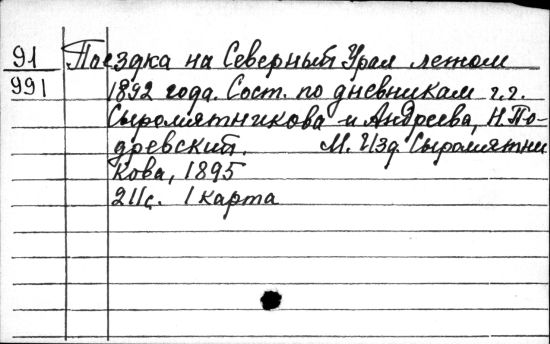 91 Поездка на Северный Урал летом
991 1892 года. Сост. по дневникам г.г.
Сыромятникова и Андреева, Н. По-
древский. М. Изд. Сыромятни
кова, 1895
211с. 1 карта